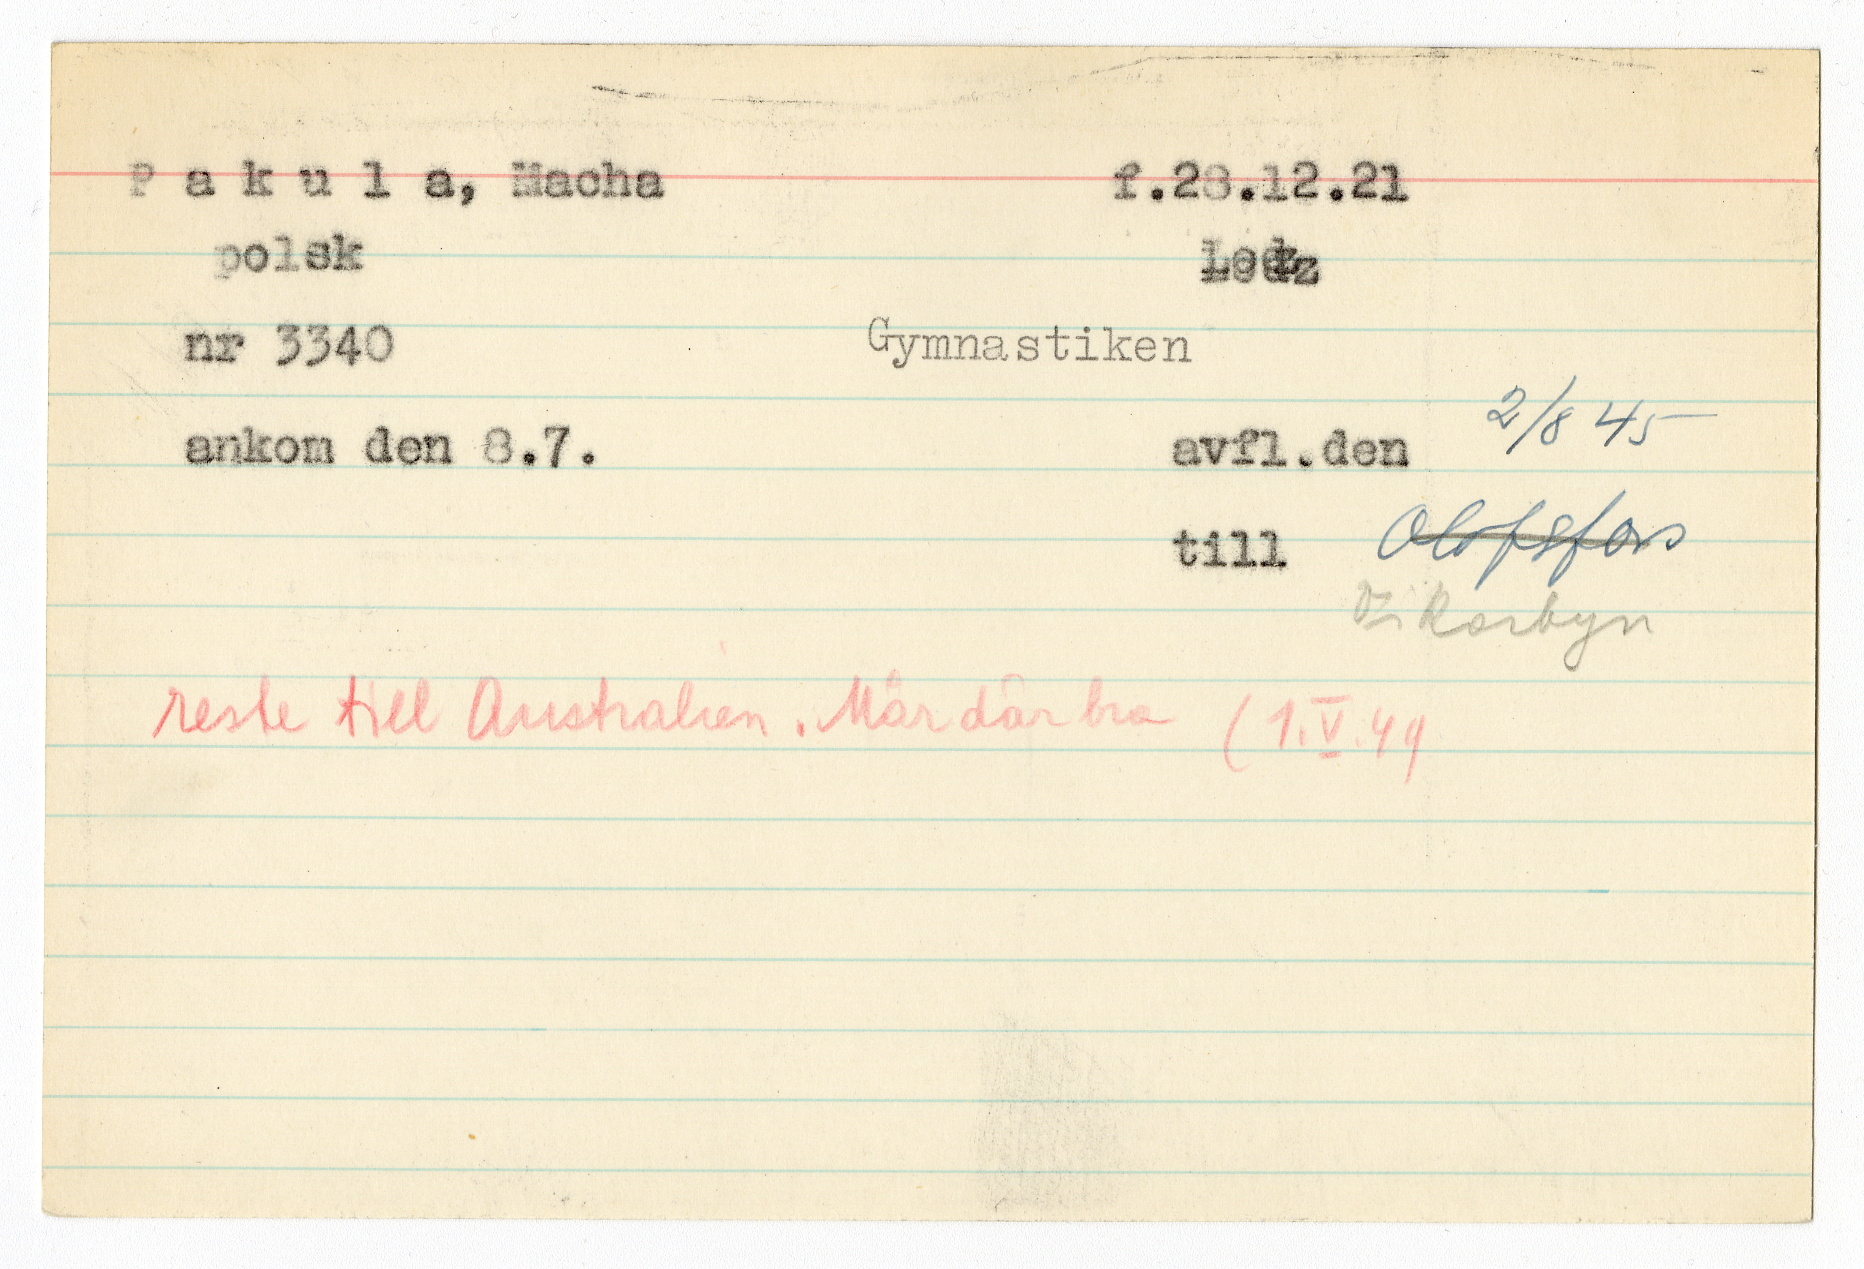 P a k u l a, Macha f.28.12.21
polsk Lodz
nr 3340 Gymnastiken
ankom den 8.7. avfl.den 2/8 45
till Olofsfors
Korbyn
reste till Australien. Mår där bra (1.V.49